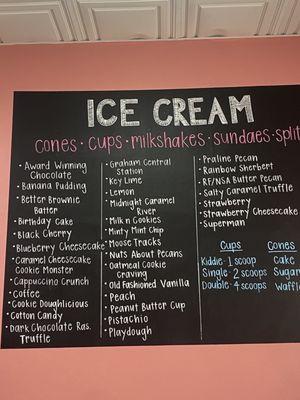 ICE CREAM
cones · cups · milkshakes · sundaes · split
· Award Winning
Chocolate
· Banana Pudding
· Better Brownie
Batter
· Birthday Cake
· Black Cherry
· Blueberry Cheesecake
· Caramel Cheesecake
Cookie Monster
· Cappuccino Crunch
· Coffee
· Cookie Doughlicious
· Cotton Candy
· Dark Chocolate Ras.
Truffle
· Graham Central
Station
· Key Lime
· Lemon
· Midnight Caramel
River
· Milk n Cookies
· Minty Mint Chip
· Moose Tracks
· Nuts About Pecans
· Oatmeal Cookie
Craving
· Old Fashioned Vanilla
· Peach
· Peanut Butter Cup
· Pistachio
· Playdough
· Praline Pecan
· Rainbow Sherbert
· RF/NSA Butter Pecan
· Salty Caramel Truffle
· Strawberry
· Strawberry Cheesecake
· Superman
Cups
Kiddie · 1 scoop
Single · 2 scoops
Double · 4 scoops
Cones
Cake
Sugar
Waffle